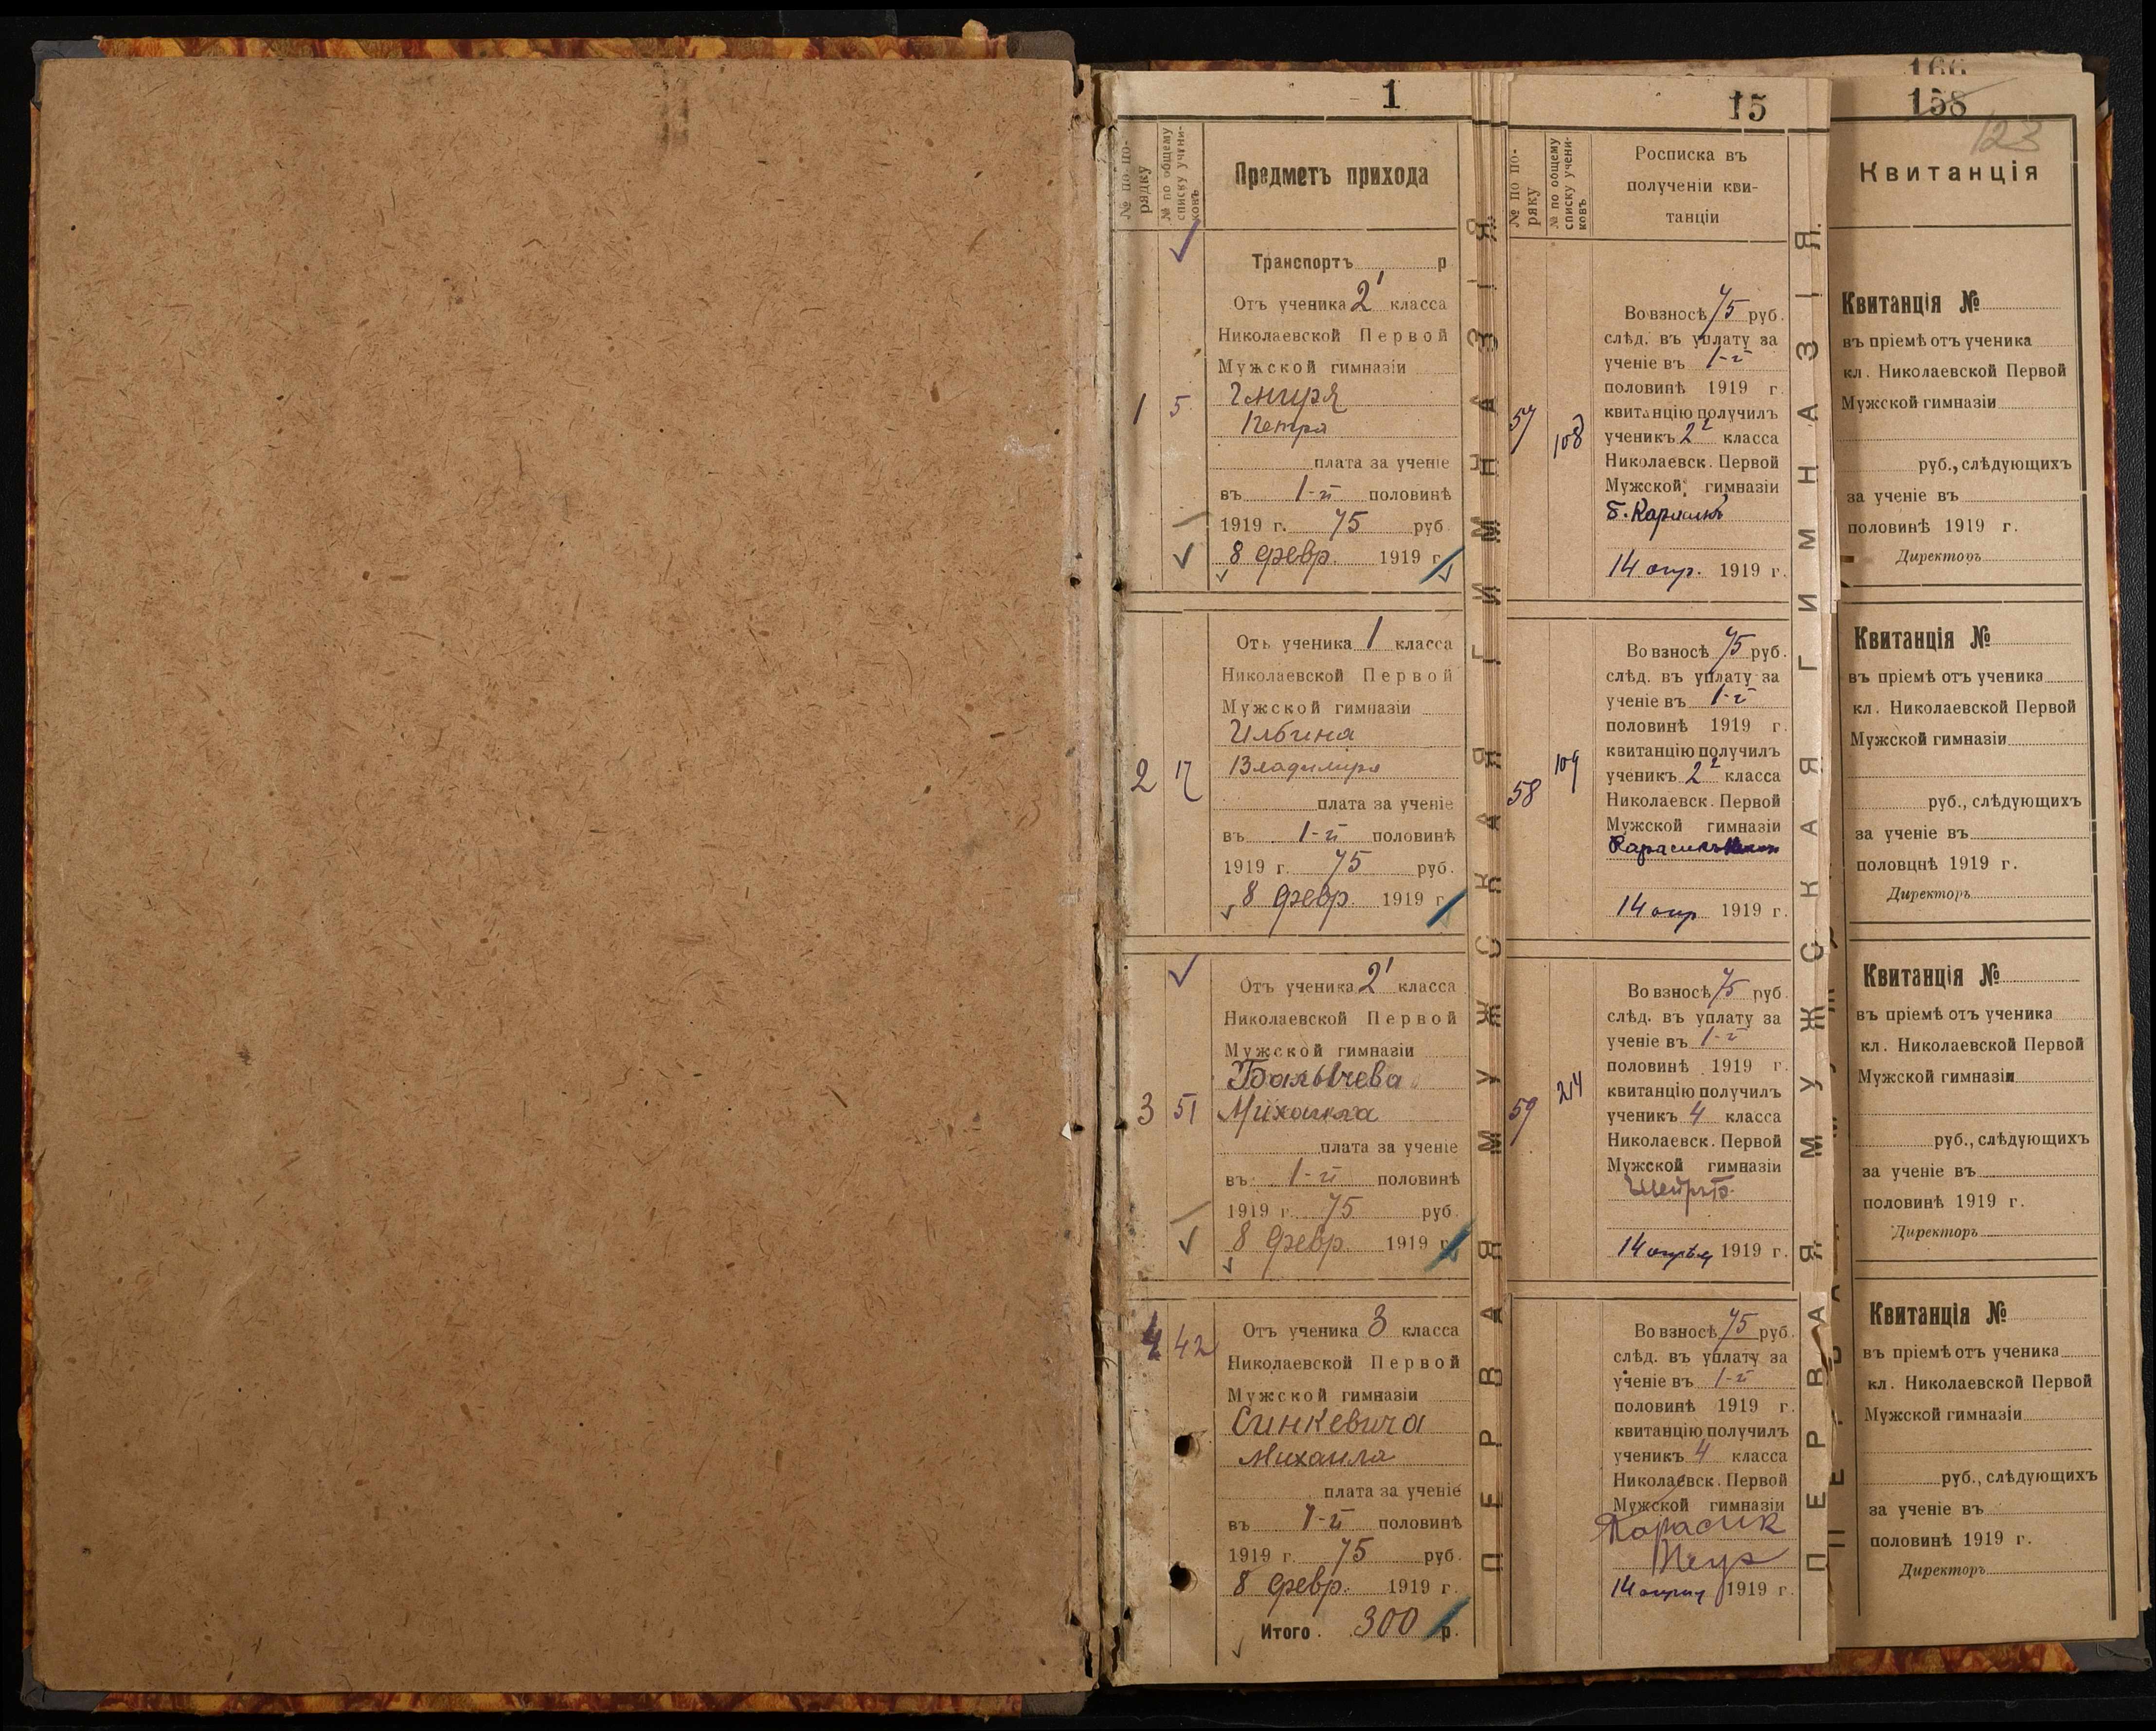 1
№ по по-
рядку
№ по общему
списку учени-
ковъ
Предметъ прихода
Транспортъ р
Отъ ученика 2¹ класса
Николаевской Первой
Мужской гимназіи
Петра
1 5
плата за ученіе
въ 1-й половинѣ
1919 г. 75 руб
8 февр. 1919 г.
Отъ ученика 1 класса
Николаевской Первой
Мужской гимназіи
Ильина
Владимира
2 17
плата за ученіе
въ 1-й половинѣ
1919 г. 75 руб.
8 февр. 1919 г.
Отъ ученика 2¹ класса
Николаевской Первой
Мужской гимназіи
Михаила
3 51
плата за ученіе
въ 1-й половинѣ
1919 г. 75 руб.
8 февр. 1919 г.
4 42
Отъ ученика 3 класса
Николаевской Первой
Мужской гимназіи
Синкевича
Михаила
плата за ученіе
въ 1-й половинѣ
1919 г. 75 руб.
8 февр. 1919 г.
Итого. 300 р.
ПЕРВАЯ МУЖСКАЯ ГИМНАЗІЯ.
15
№ по по-
ряку
№ по общему
списку учени-
ковъ
Росписка въ
полученіи кви-
танціи
Во взносѣ 75 руб.
слѣд. въ уплату за
ученіе въ 1-й
половинѣ 1919 г.
квитанцію получилъ
57 108
ученикъ 2² класса
Николаевск. Первой
Мужской гимназіи
Б. Карасикъ
14 апр. 1919 г.
Во взносѣ 75 руб.
слѣд. въ уплату за
ученіе въ 1-й
половинѣ 1919 г.
квитанцію получилъ
58 109
ученикъ 2² класса
Николаевск. Первой
Мужской гимназіи
Карасикъ
14 апр 1919 г.
Во взносѣ 75 руб.
слѣд. въ уплату за
ученіе въ 1-й
половинѣ 1919 г.
квитанцію получилъ
59 214
ученикъ 4 класса
Николаевск. Первой
Мужской гимназіи
14 апрѣля 1919 г.
Во взносѣ 75 руб.
слѣд. въ уплату за
ученіе въ 1-й
половинѣ 1919 г.
квитанцію получилъ
ученикъ 4 класса
Николаевск. Первой
Мужской гимназіи
Карасик
14 апрѣля 1919 г.
ПЕРВАЯ МУЖСКАЯ ГИМНАЗІЯ.
166
158
123
Квитанція
Квитанція №
въ пріемѣ отъ ученика
кл. Николаевской Первой
Мужской гимназіи
руб., слѣдующихъ
за ученіе въ
половинѣ 1919 г.
Директоръ
Квитанція №
въ пріемѣ отъ ученика
кл. Николаевской Первой
Мужской гимназіи
руб., слѣдующихъ
за ученіе въ
половцнѣ 1919 г.
Директоръ
Квитанція №
въ пріемѣ отъ ученика
кл. Николаевской Первой
Мужской гимназіи
руб., слѣдующихъ
за ученіе въ
половинѣ 1919 г.
Директоръ
Квитанція №
въ пріемѣ отъ ученика
кл. Николаевской Первой
Мужской гимназіи
руб., слѣдующихъ
за ученіе въ
половинѣ 1919 г.
Директоръ